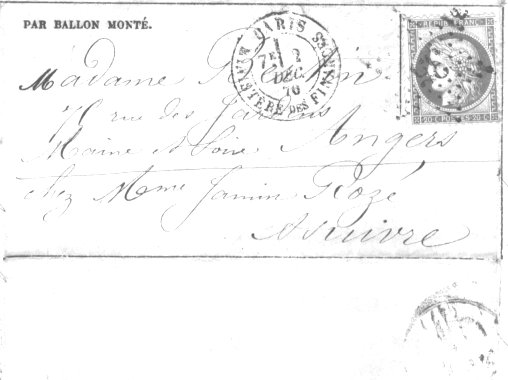 PAR BALLON MONTÉ.
PARIS
7E 2
DÉC.
70
MINISTÈRE DES FINANCES
REPUB FRANC
20 C POSTES 20 C
Madame
rue des
Maine et Loire Angers
chez Mme Jamin Rozé
A suivre